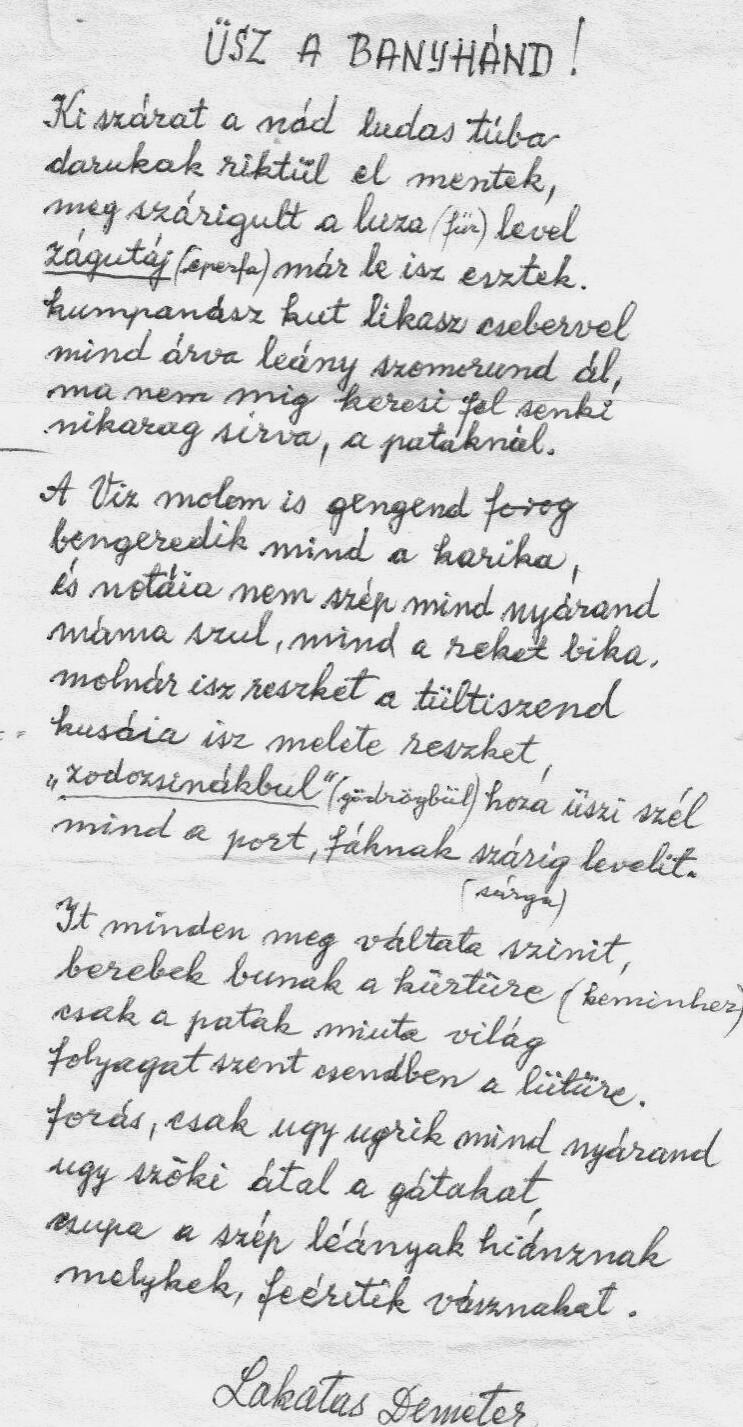 ÜSZ A BANYHÁND!
Ki szárat a nád ludas túba
darukak riktül el mentek,
meg szárigult a luza (für) level
zágutáj (eperfa) már le isz esztek.
kumpanász kut likasz csebervel
mind árva leány szomorund ál,
ma nem mig keresi fel senki
nikarag sirva, a pataknál.
A Viz molom is gengend forog
bengeredik mind a karika,
és notáia nem szép mind nyárand
máma szul, mind a reket bika.
molnár isz reszket a tültiszend
kusáia isz melete reszket,
„zodozsinákbul" (gödrögbül) hoza üszi szél
mind a port, fáknak szárig levelit.
(sárga)
It minden meg váltata szinit,
berebek bunak a kürtüre (keminher)
csak a patak miuta világ
folyagat szent csendben a lütüre.
forás, csak ugy ugrik mind nyárand
ugy szöki átal a gátakat,
csupa a szép léányak hiánznak
melykek, feéritik vásznakat.
Lakatas Demeter